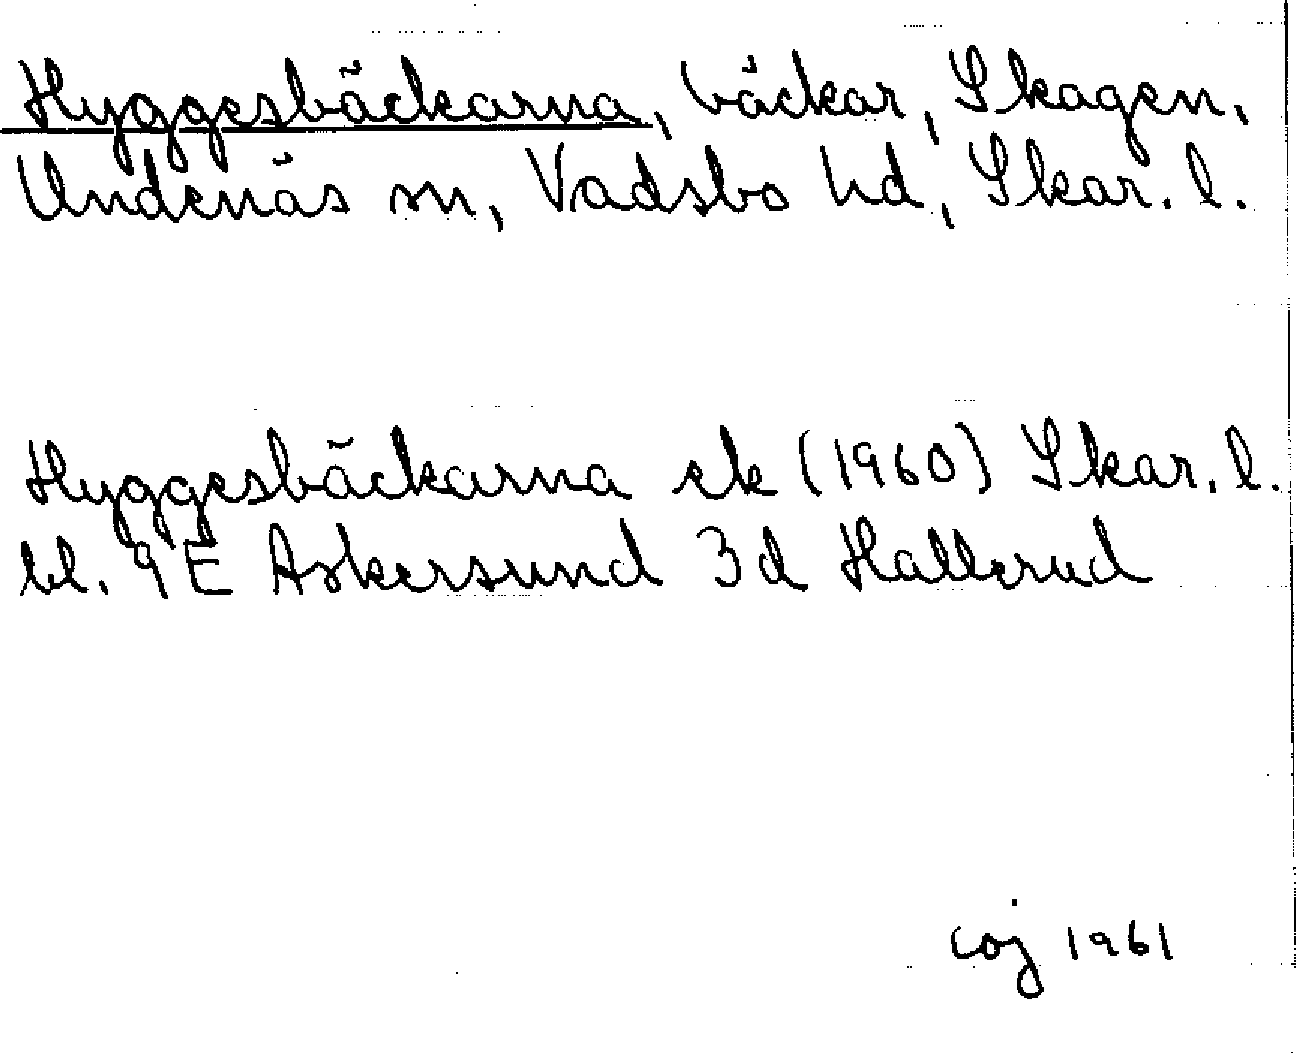 Hyggesbäckarna, bäckar, Skagen,
Undenäs sn, Vadsbo hd, Skar. l.
Hyggesbäckarna ek (1960) Skar. l.
bl. 9 E Askersund 3d Hallerud
coj 1961